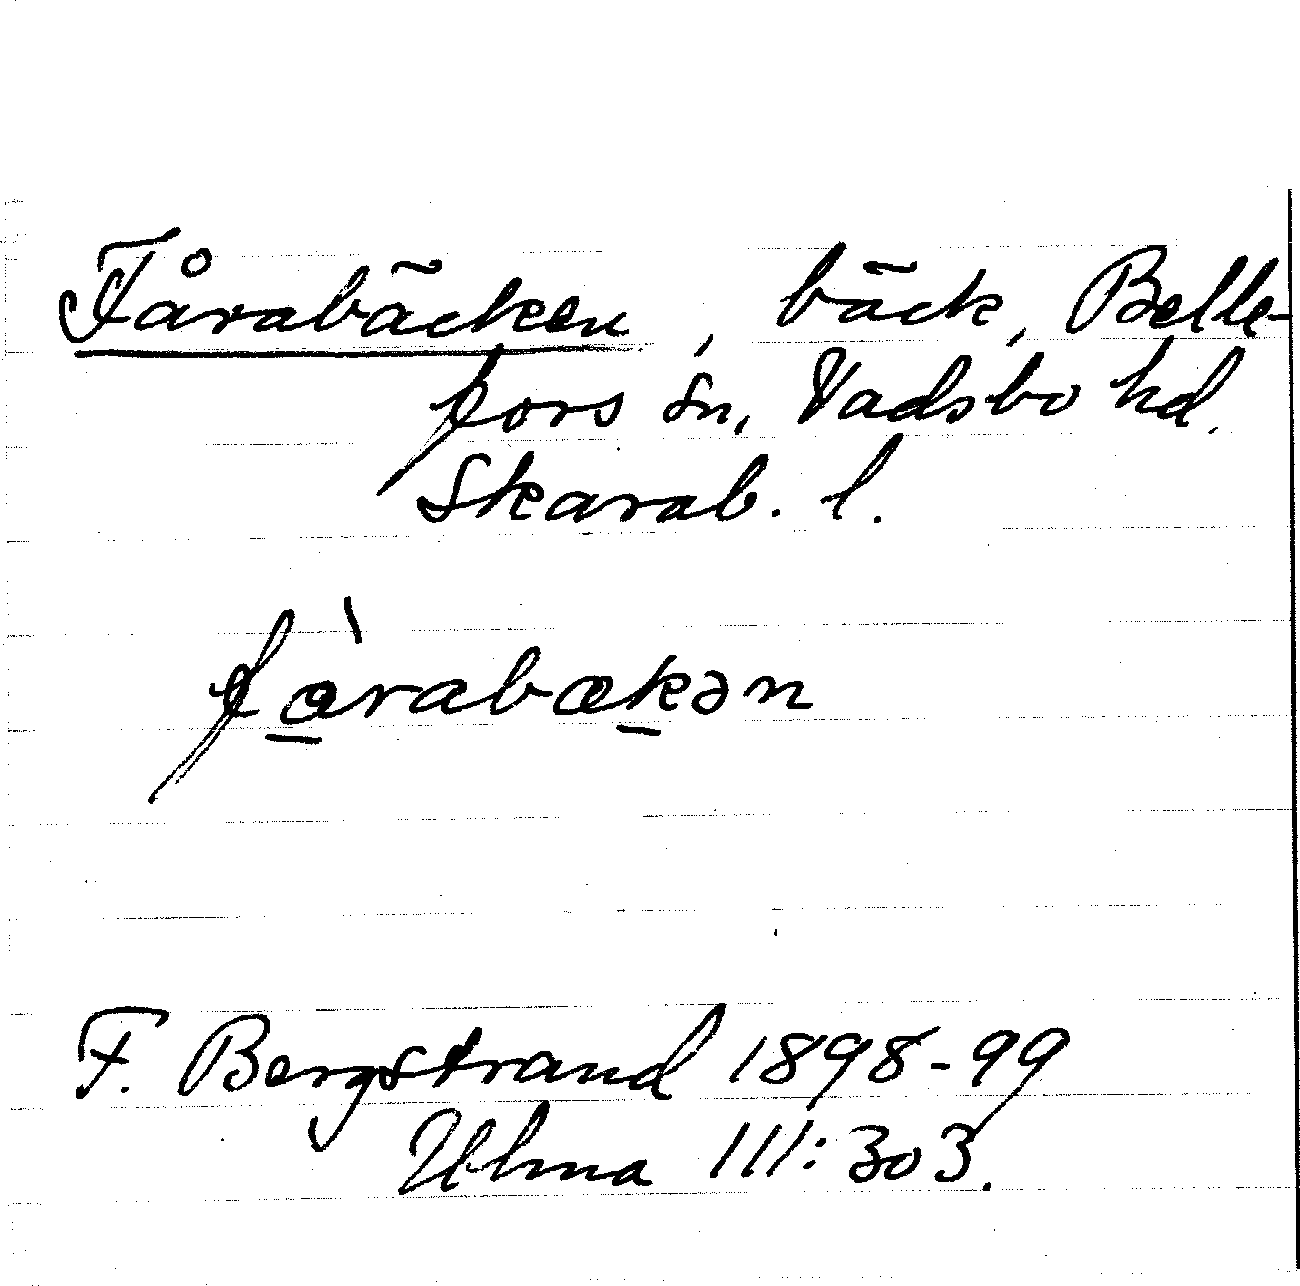 Fårabäcken, bäck, Belle-
fors sn, Vadsbo hd.
Skarab. l.
fɑ̀rabækən
F. Bergstrand 1898-99
Ulma 111:303.